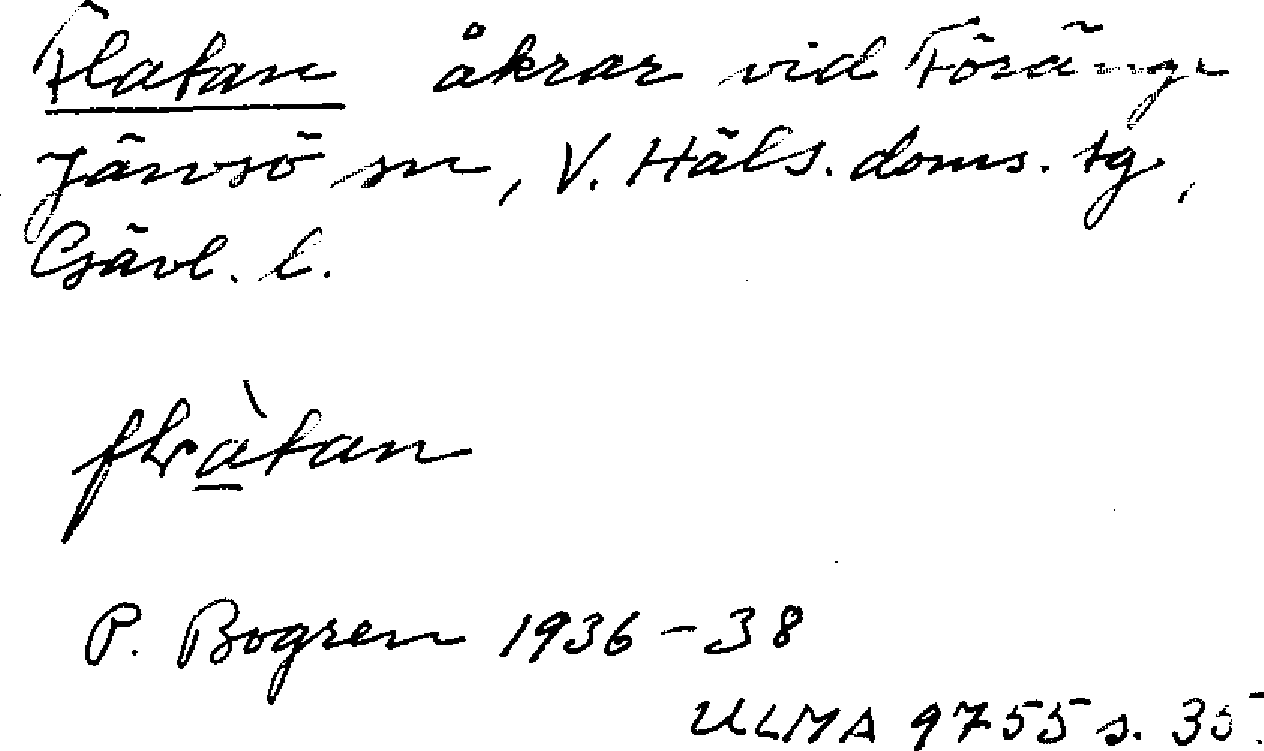 Flatan åkrar vid Föränge
Järvsö sn, V. Häls. doms. tg,
Gävl. l.
flàtan
P. Bogren 1936-38
ULMA 9755 s. 35.